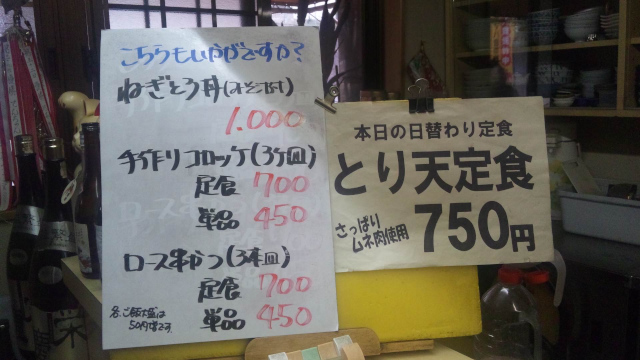 こちらもいかがですか?
ねぎとろ丼(みそ汁付)
1.000
手作りコロッケ(3ケ皿)
定食 700
単品 450
ロース串かつ(3本皿)
定食 700
単品 450
各、ご飯大盛は
50円増です。
本日の日替わり定食
とり天定食
さっぱり
ムネ肉使用
750円